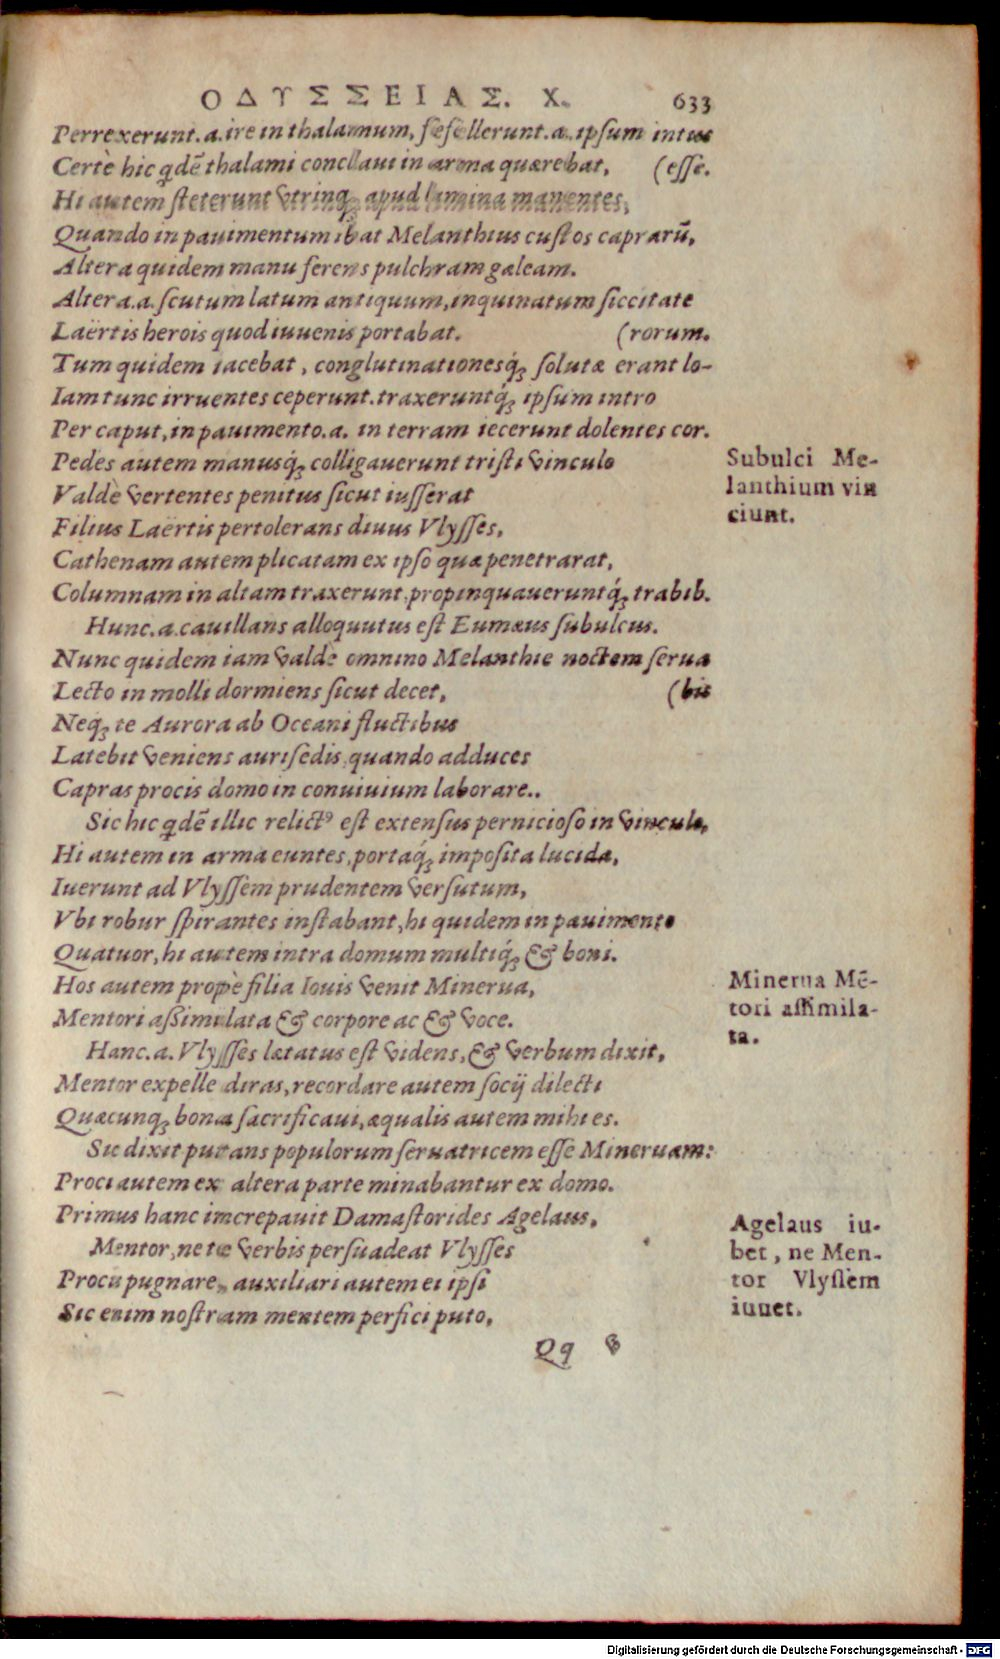 ΟΔΥΣΣΕΙΑΣ. Χ. 633
Perrexerunt.a.ire in thalamum, fefellerunt.a.ipsum intus
Certè hic qdē thalami conclaui in arma quærebat, (esse.
Hi autem steterunt vtrinq; apud limina manentes,
Quando in pauimentum ibat Melanthius custos caprarū,
Altera quidem manu ferens pulchram galeam.
Altera.a.scutum latum antiquum, inquinatum siccitate
Laërtis herois quod iuuenis portabat. (rorum.
Tum quidem iacebat, conglutinationesq́; solutæ erant lo-
Iam tunc irruentes ceperunt.traxeruntq́; ipsum intro
Per caput, in pauimento.a. in terram iecerunt dolentes cor.
Pedes autem manusq́; colligauerunt tristi vinculo
Valdè vertentes penitus sicut iusserat
Filius Laërtis pertolerans diuus Vlysses,
Cathenam autem plicatam ex ipso quæ penetrarat,
Columnam in altam traxerunt, propinquaueruntq́; trabib.
Hunc.a.cauillans alloquutus est Eumæus subulcus.
Nunc quidem iam valdè omnino Melanthie noctem serua
Lecto in molli dormiens sicut decet, (bis
Neq; te Aurora ab Oceani fluctibus
Latebit veniens aurisedis, quando adduces
Capras procis domo in conuiuium laborare..
Sic hic qdē illic relict⁹ est extensus pernicioso in vinculo,
Hi autem in arma euntes, portaq́; imposita lucida,
Iuerunt ad Vlyssem prudentem versutum,
Vbi robur spirantes instabant, hi quidem in pauimento
Quatuor, hi autem intra domum multiq́; & boni.
Hos autem propè filia Iouis venit Minerua,
Mentori assimulata & corpore ac & voce.
Hanc.a. Vlysses lætatus est videns, & verbum dixit,
Mentor expelle diras, recordare autem socij dilecti
Quæcunq; bona sacrificaui, æqualis autem mihi es.
Sic dixit putans populorum seruatricem esse Mineruam:
Proci autem ex altera parte minabantur ex domo.
Primus hanc increpauit Damastorides Agelaus,
Mentor, ne te verbis persuadeat Vlysses
Procis pugnare, auxiliari autem ei ipsi
Sic enim nostram mentem perfici puto,
Qq 5
Subulci Me-
lanthium vin
ciunt.
Minerua Mē-
tori assimila-
ta.
Agelaus iu-
bet, ne Men-
tor Vlyssem
iuuet.
Digitalisierung gefördert durch die Deutsche Forschungsgemeinschaft - DFG